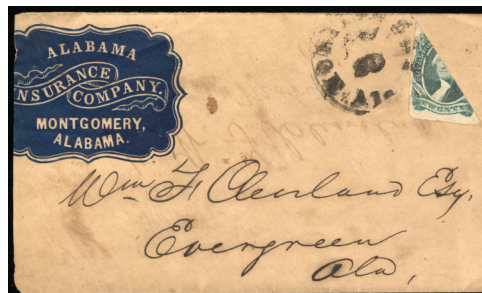 ALABAMA
INSURANCE
COMPANY.
MONTGOMERY,
ALABAMA.
TWENTY
Wm F. Cleveland Esq.
Evergreen
Ala,